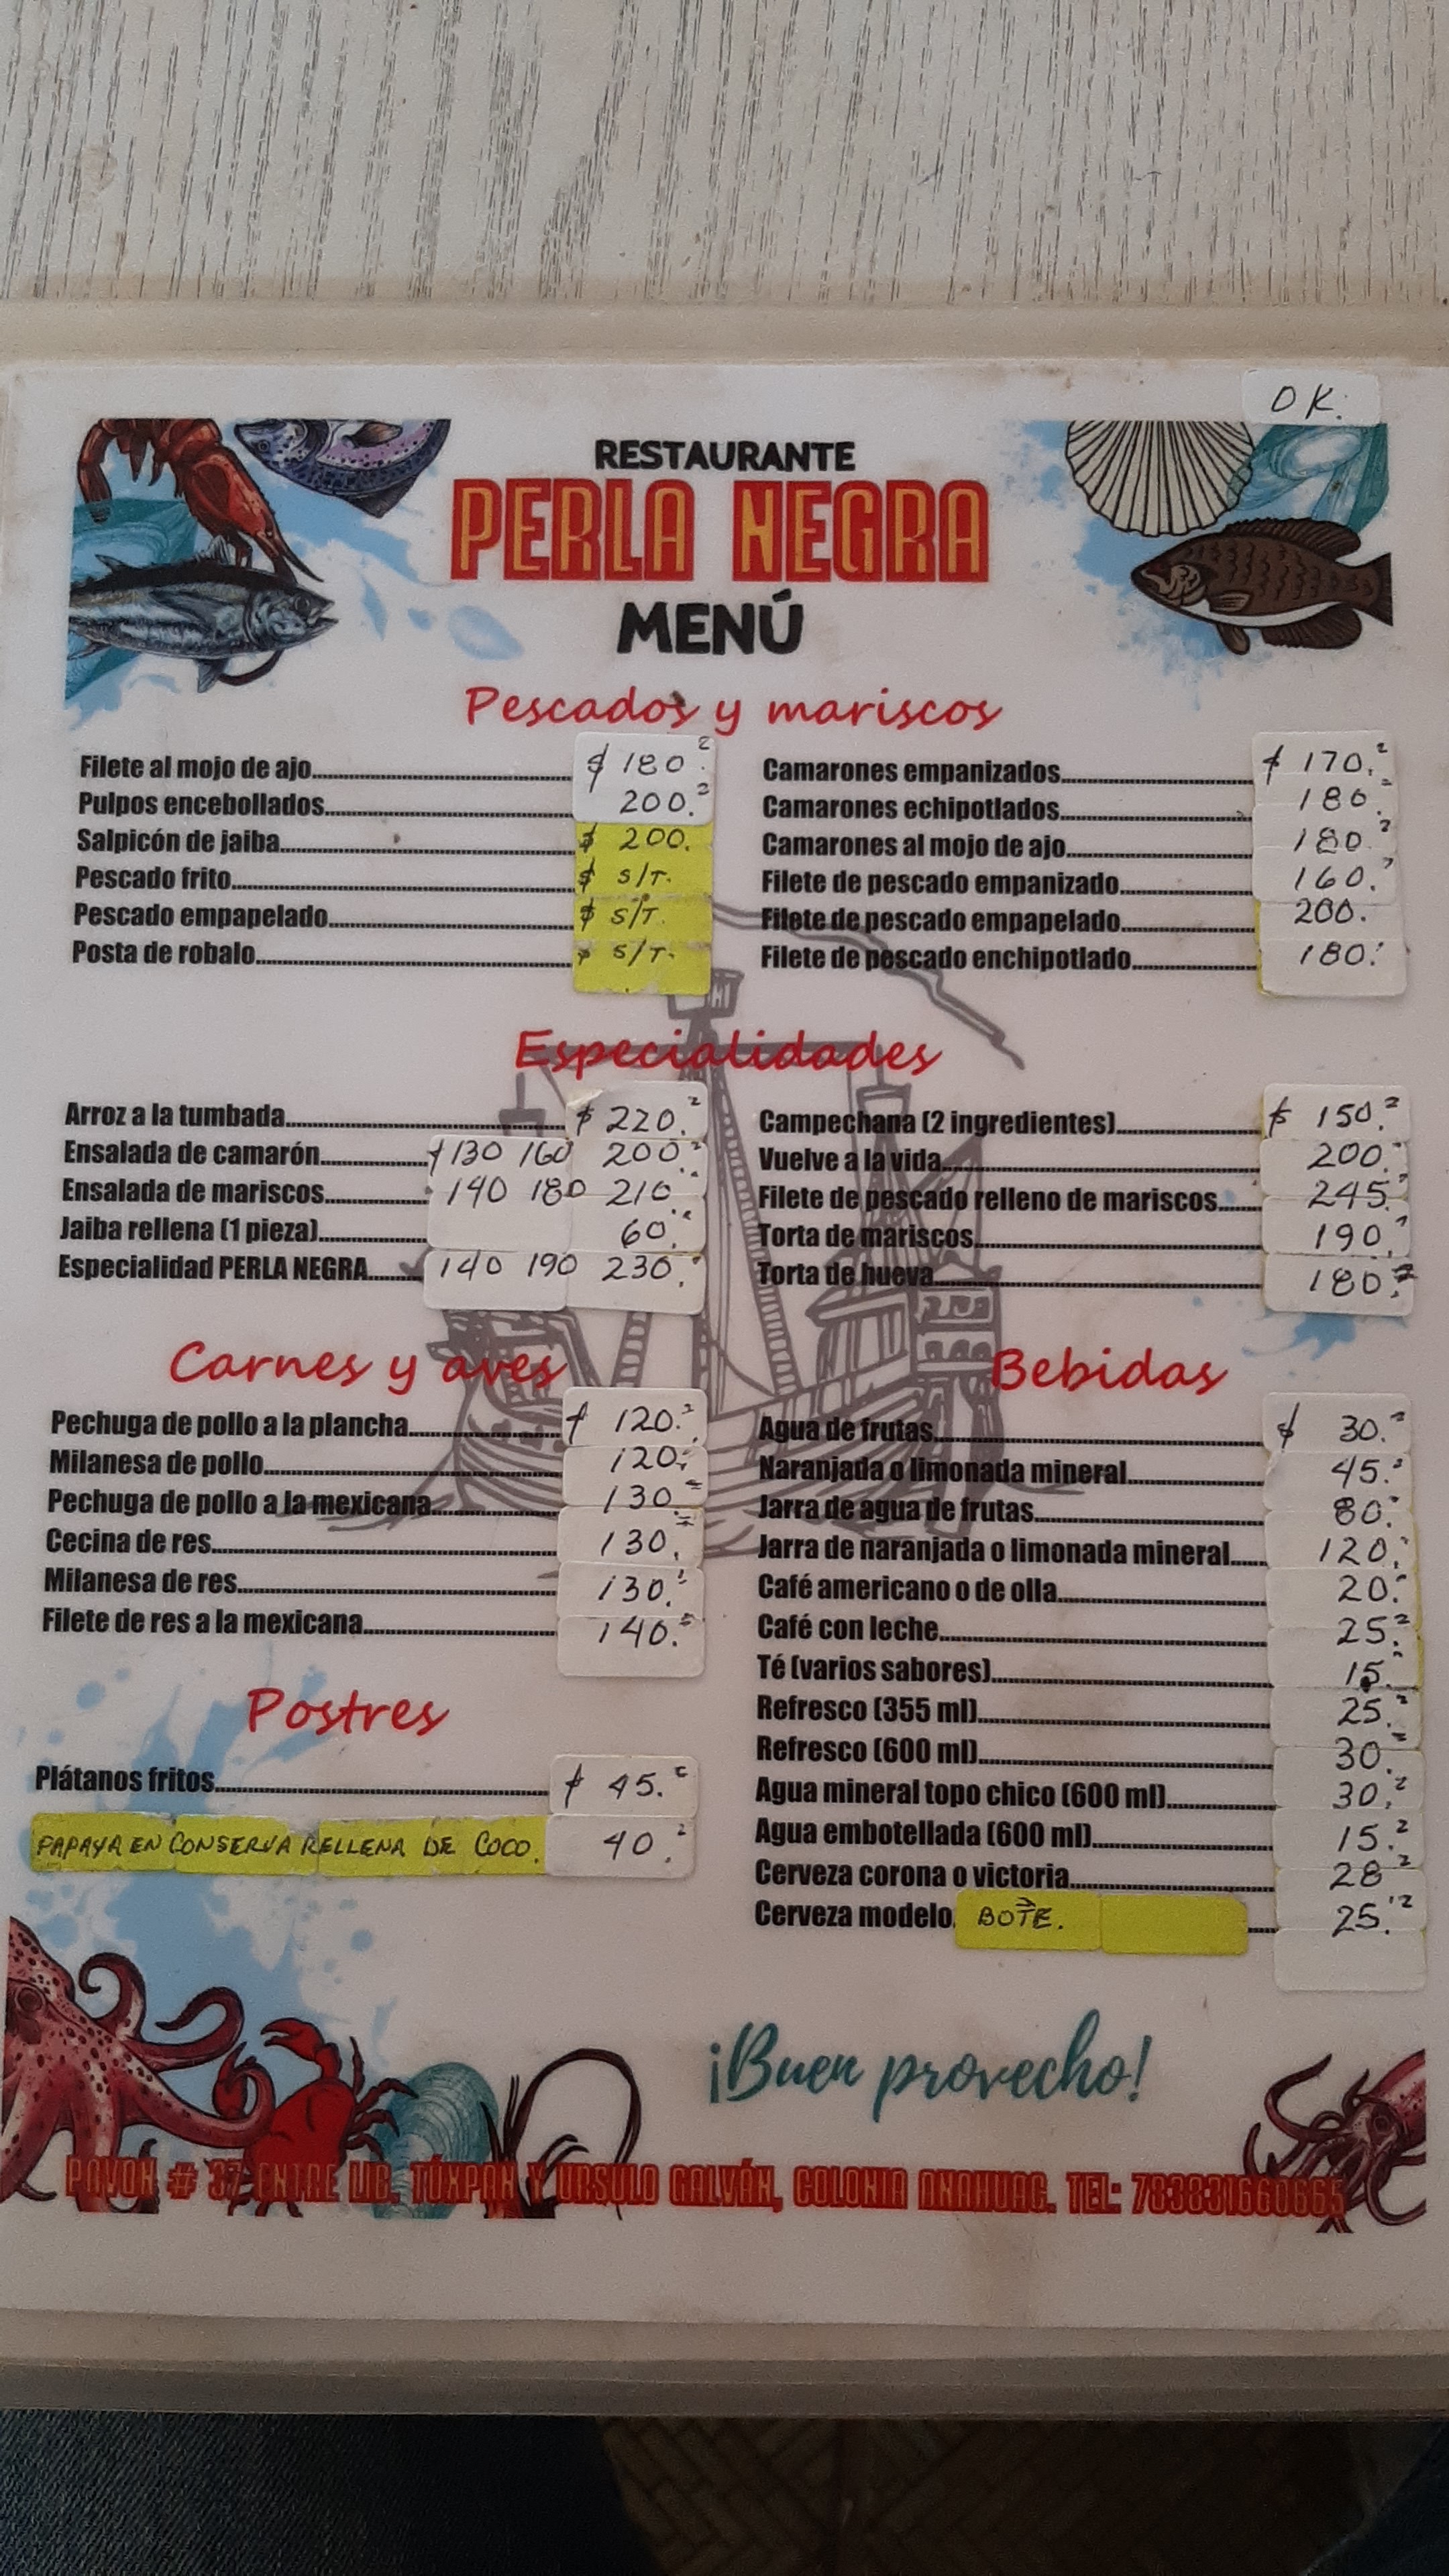 OK.
RESTAURANTE
PERLA NEGRA
MENÚ
Pescados y mariscos
Filete al mojo de ajo $ 180.
Pulpos encebollados 200.
Salpicón de jaiba $ 200.
Pescado frito $ S/T.
Pescado empapelado $ S/T.
Posta de robalo $ S/T.
Camarones empanizados $ 170.
Camarones echipotlados 180.
Camarones al mojo de ajo 180.
Filete de pescado empanizado 160.
Filete de pescado empapelado 200.
Filete de pescado enchipotlado 180.
Especialidades
Arroz a la tumbada $ 220.
Ensalada de camarón $ 130 160 200
Ensalada de mariscos 140 180 210
Jaiba rellena (1 pieza) 60.
Especialidad PERLA NEGRA 140 190 230.
Campechana (2 ingredientes) $ 150.
Vuelve a la vida 200.
Filete de pescado relleno de mariscos 245.
Torta de mariscos 190.
Torta de hueva 180.
Carnes y aves
Pechuga de pollo a la plancha $ 120.
Milanesa de pollo 120.
Pechuga de pollo a la mexicana 130
Cecina de res 130.
Milanesa de res 130.
Filete de res a la mexicana 140.
Postres
Plátanos fritos $ 45.
PAPAYA EN CONSERVA RELLENA DE COCO. 40.
Bebidas
Agua de frutas $ 30.
Naranjada o limonada mineral 45.
Jarra de agua de frutas 80.
Jarra de naranjada o limonada mineral 120.
Café americano o de olla 20.
Café con leche 25.
Té (varios sabores) 15.
Refresco (355 ml) 25.
Refresco (600 ml) 30.
Agua mineral topo chico (600 ml) 30.
Agua embotellada (600 ml) 15.
Cerveza corona o victoria 28
Cerveza modelo BOTE. 25.
¡Buen provecho!
PAVON # 37 ENTRE LIB. TÚXPAN Y URSULO GALVÁN, COLONIA ANAHUAC. TEL: 783831660665